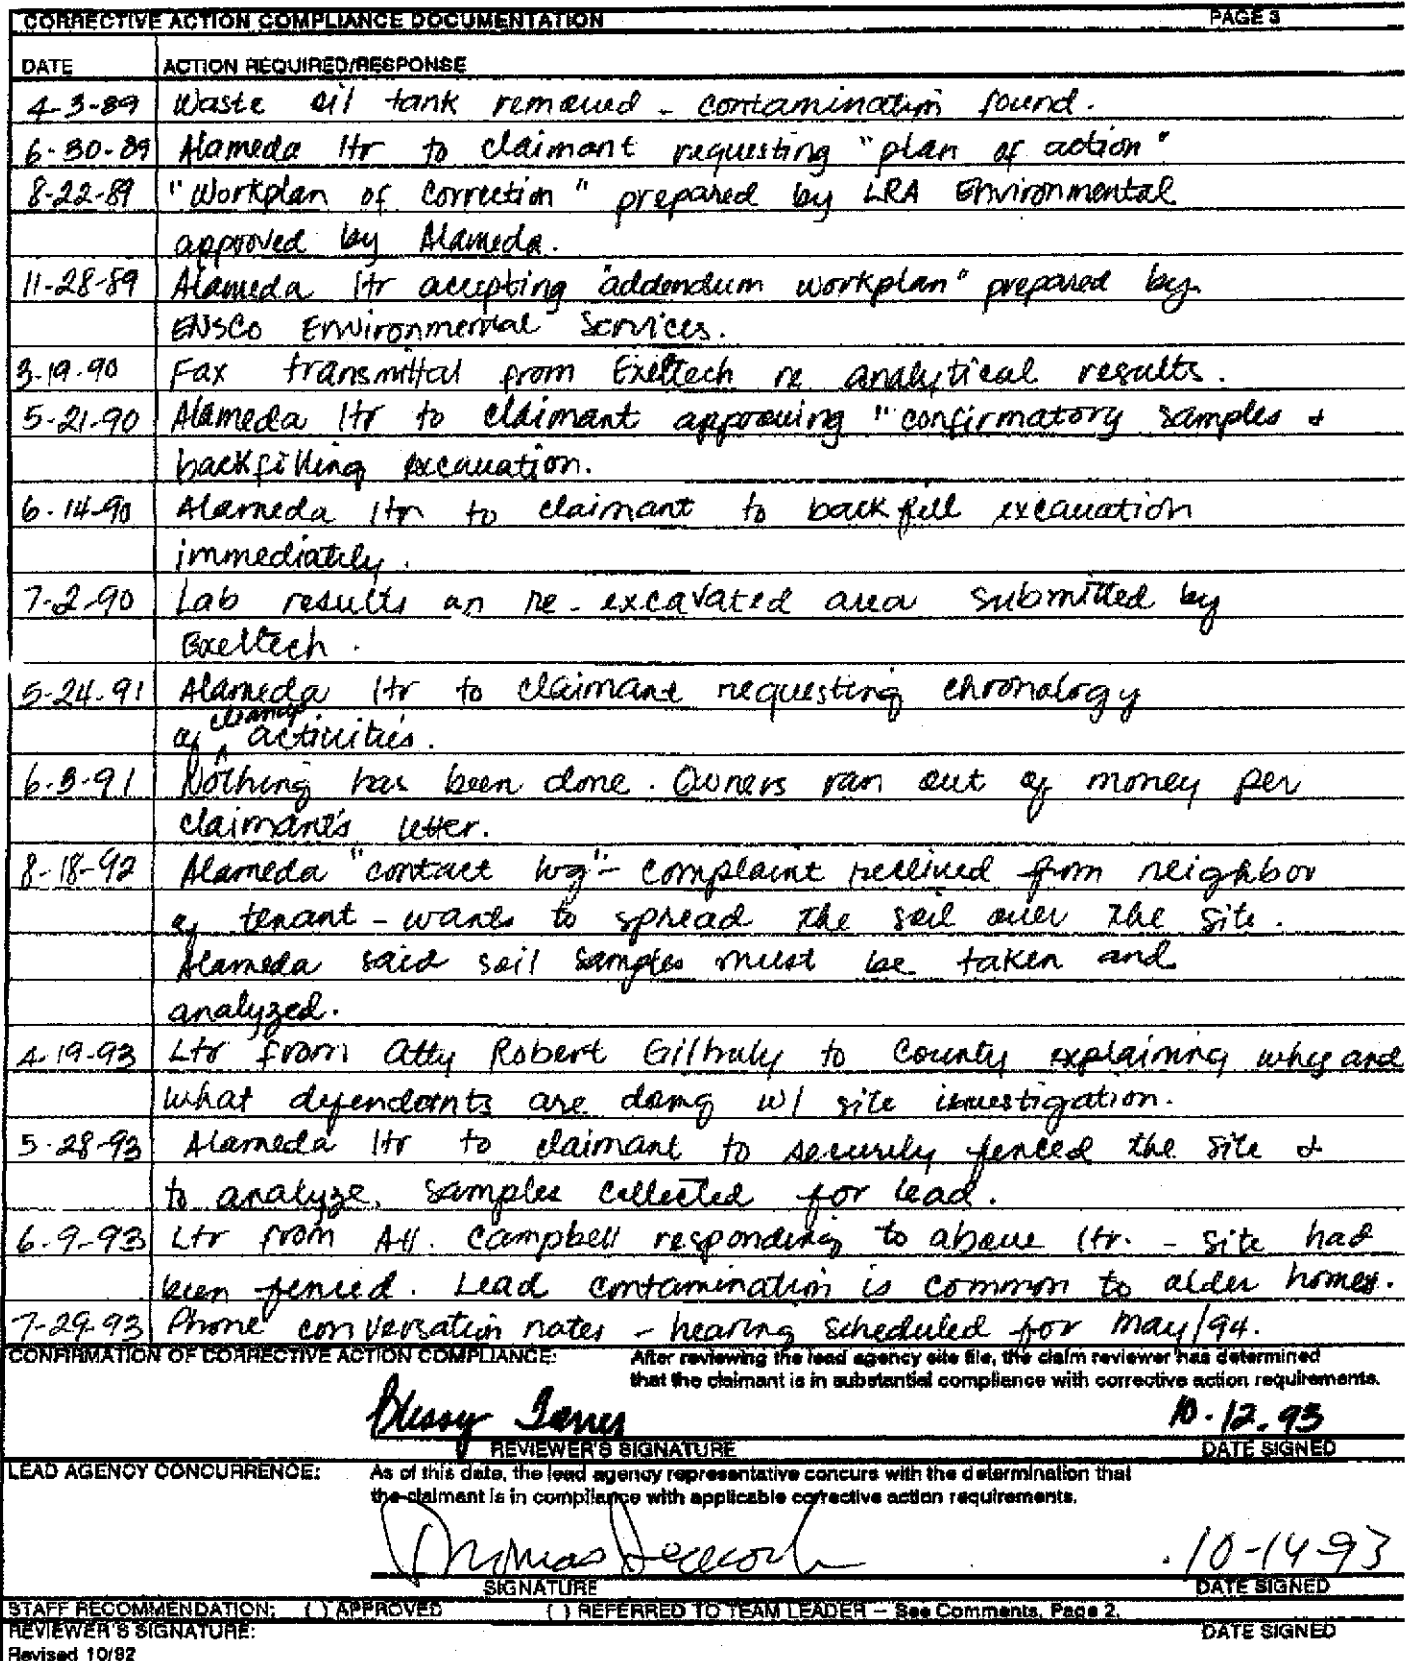 CORRECTIVE ACTION COMPLIANCE DOCUMENTATION PAGE 3
DATE ACTION REQUIRED/RESPONSE
4-3-89 Waste oil tank removed - contamination found.
6-30-89 Alameda ltr to claimant requesting "plan of action"
8-22-89 "Workplan of Correction" prepared by LRA Environmental
approved by Alameda.
11-28-89 Alameda ltr accepting "addendum workplan" prepared by
ENSCO Environmental Services.
3-19-90 Fax transmittal from Exeltech re analytical results.
5-21-90 Alameda ltr to claimant approving "confirmatory samples &
backfilling excavation.
6-14-90 Alameda ltr to claimant to backfill excavation
immediately.
7-2-90 Lab results on re-excavated area submitted by
Exeltech.
5-24-91 Alameda ltr to claimant requesting chronology
of cleanup activities.
6-3-91 Nothing has been done. Owners ran out of money per
claimant's letter.
8-18-92 Alameda "contact log" - complaint received from neighbor
of tenant - wants to spread the soil over the site.
Alameda said soil samples must be taken and
analyzed.
4-19-93 Ltr from Atty Robert Gilhuly to County explaining why and
what defendants are doing w/ site investigation.
5-28-93 Alameda ltr to claimant to securely fenced the site &
to analyze samples collected for lead.
6-9-93 Ltr from Att. Campbell responding to above ltr. - site had
been fenced. Lead contamination is common to older homes.
7-29-93 Phone conversation notes - hearing scheduled for May/94.
CONFIRMATION OF CORRECTIVE ACTION COMPLIANCE: After reviewing the lead agency site file, the claim reviewer has determined
that the claimant is in substantial compliance with corrective action requirements.
Blessy Torres 10-12-93
REVIEWER'S SIGNATURE DATE SIGNED
LEAD AGENCY CONCURRENCE: As of this date, the lead agency representative concurs with the determination that
the claimant is in compliance with applicable corrective action requirements.
Thomas 10-14-93
SIGNATURE DATE SIGNED
STAFF RECOMMENDATION: ( ) APPROVED ( ) REFERRED TO TEAM LEADER - See Comments, Page 2.
REVIEWER'S SIGNATURE: DATE SIGNED
Revised 10/92